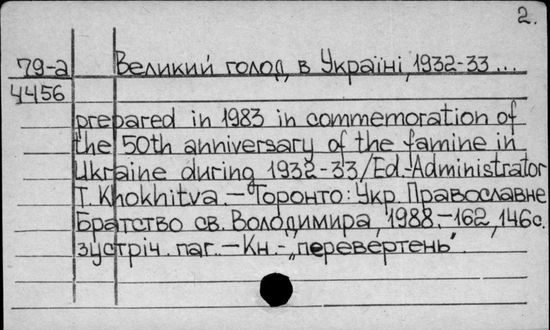 2.
79-а Великий голод в Україні, 1932-33 ...
4456
prepared in 1983 in commemoration of
the 50th anniversary of the famine in
Ukraine during 1932-33/Ed.-Administrator
T. Khokhitva.—Торонто: Укр. Православне
Братство св. Володимира, 1988.—162, 146с.
зустріч. паг.—Кн.-„перевертень".